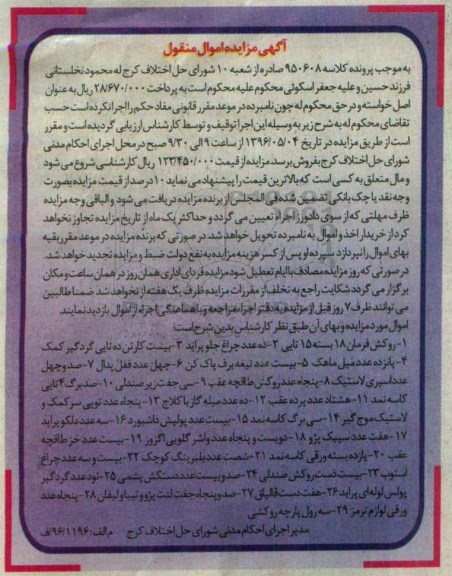 آگهی مزایده اموال منقول
به موجب پرونده کلاسه ۹۵۰۶۰۸ صادره از شعبه ۱۰ شورای حل اختلاف کرج له محمود نخلستانی
فرزند حسین و علیه جعفر اسکوئی محکوم علیه محکوم است به پرداخت ۲۸/۶۷۰/۰۰۰ ریال به عنوان
اصل خواسته و در حق محکوم له چون نامبرده در موعد مقرر قانونی مفاد حکم را اجرا نکرده است حسب
تقاضای محکوم له به شرح زیر به وسیله این اجرا توقیف و توسط کارشناس ارزیابی گردیده است و مقرر
است از طریق مزایده در تاریخ ۱۳۹۶/۰۵/۰۴ از ساعت ۹ الی ۹/۳۰ صبح در محل اجرای احکام مدنی
شورای حل اختلاف کرج بفروش برسد مزایده از قیمت ۱۲۳/۴۵۰/۰۰۰ ریال کارشناسی شروع می شود
و مال متعلق به کسی است که بالاترین قیمت را پیشنهاد می نماید ۱۰ درصد از قیمت مزایده بصورت
وجه نقد یا چک بانکی تضمین شده فی المجلس از برنده مزایده دریافت می شود و الباقی وجه مزایده
ظرف مهلتی که از سوی دادورز اجراء تعیین می گردد و حداکثر یک ماه از تاریخ مزایده تجاوز نخواهد
کرد از خریدار اخذ و اموال به نامبرده تحویل خواهد شد. در صورتی که برنده مزایده در موعد مقرر بقیه
بهای اموال را نپردازد سپرده او پس از کسر هزینه مزایده به نفع دولت ضبط و مزایده تجدید خواهد شد.
در صورتی که روز مزایده مصادف با ایام تعطیل شود مزایده فردای اداری همان روز در همان ساعت و مکان
برگزار می گردد شکایت راجع به تخلف از مقررات مزایده ظرف یک هفته از نخواهد شد. ضمنا طالبین
می توانند ظرف ۷ روز قبل از مزایده به دفتر اجراء مراجعه و با هماهنگی اجراء از اموال بازدید نمایند
اموال مورد مزایده و بهای آن طبق نظر کارشناس بدین شرح است:
۱- روکش فرمان ۱۸ بسته ۱۵ تایی ۲- ده عدد چراغ جلو پراید ۳- بیست کارتن ده تایی گردگیر کمک
۴- پانزده عدد میل ماهک ۵- بیست عدد تیغه برف پاک کن ۶- چهل عدد قفل پدال ۷- صد و چهل
عدد اسپری لاستیک ۸- پنجاه عدد روکش طاقچه عقب ۹- سی جفت زیر صندلی ۱۰- صد برگ ۴ تایی
کاسه نمد ۱۱- هشتاد عدد پرده عقب ۱۲- ده عدد میله گاز با کلاچ ۱۳- پنجاه عدد توپی سر کمک و
لاستیک موج گیر ۱۴- سی برگ کاسه نمد ۱۵- بیست عدد پولیش داشبورد ۱۶- سه عدد دلکو پراید
۱۷- هفت عدد سیبک پژو ۱۸- دویست و پنجاه عدد واشر گلویی اگزوز ۱۹- بیست عدد خز طاقچه
عقب ۲۰- پانزده بسته ورقی کاسه نمد ۲۱- شصت عدد بلبرینگ کوچک ۲۲- بیست و سه عدد چراغ
استوپ ۲۳- بیست دست روکش صندلی ۲۴- صد و بیست عدد دستکش پشمی ۲۵- نود عدد گردگیر
پولس لوله ای پراید ۲۶- هفت دست قالپاق ۲۷- صد و پنجاه جفت لنت پژو و تیبا و لیفان ۲۸- پنجاه عدد
ورقی لوازم ترمز ۲۹- سه رول پارچه روکشی
مدیر اجرای احکام مدنی شورای حل اختلاف کرج م الف: ۹۶/۱۱۹۶/ف